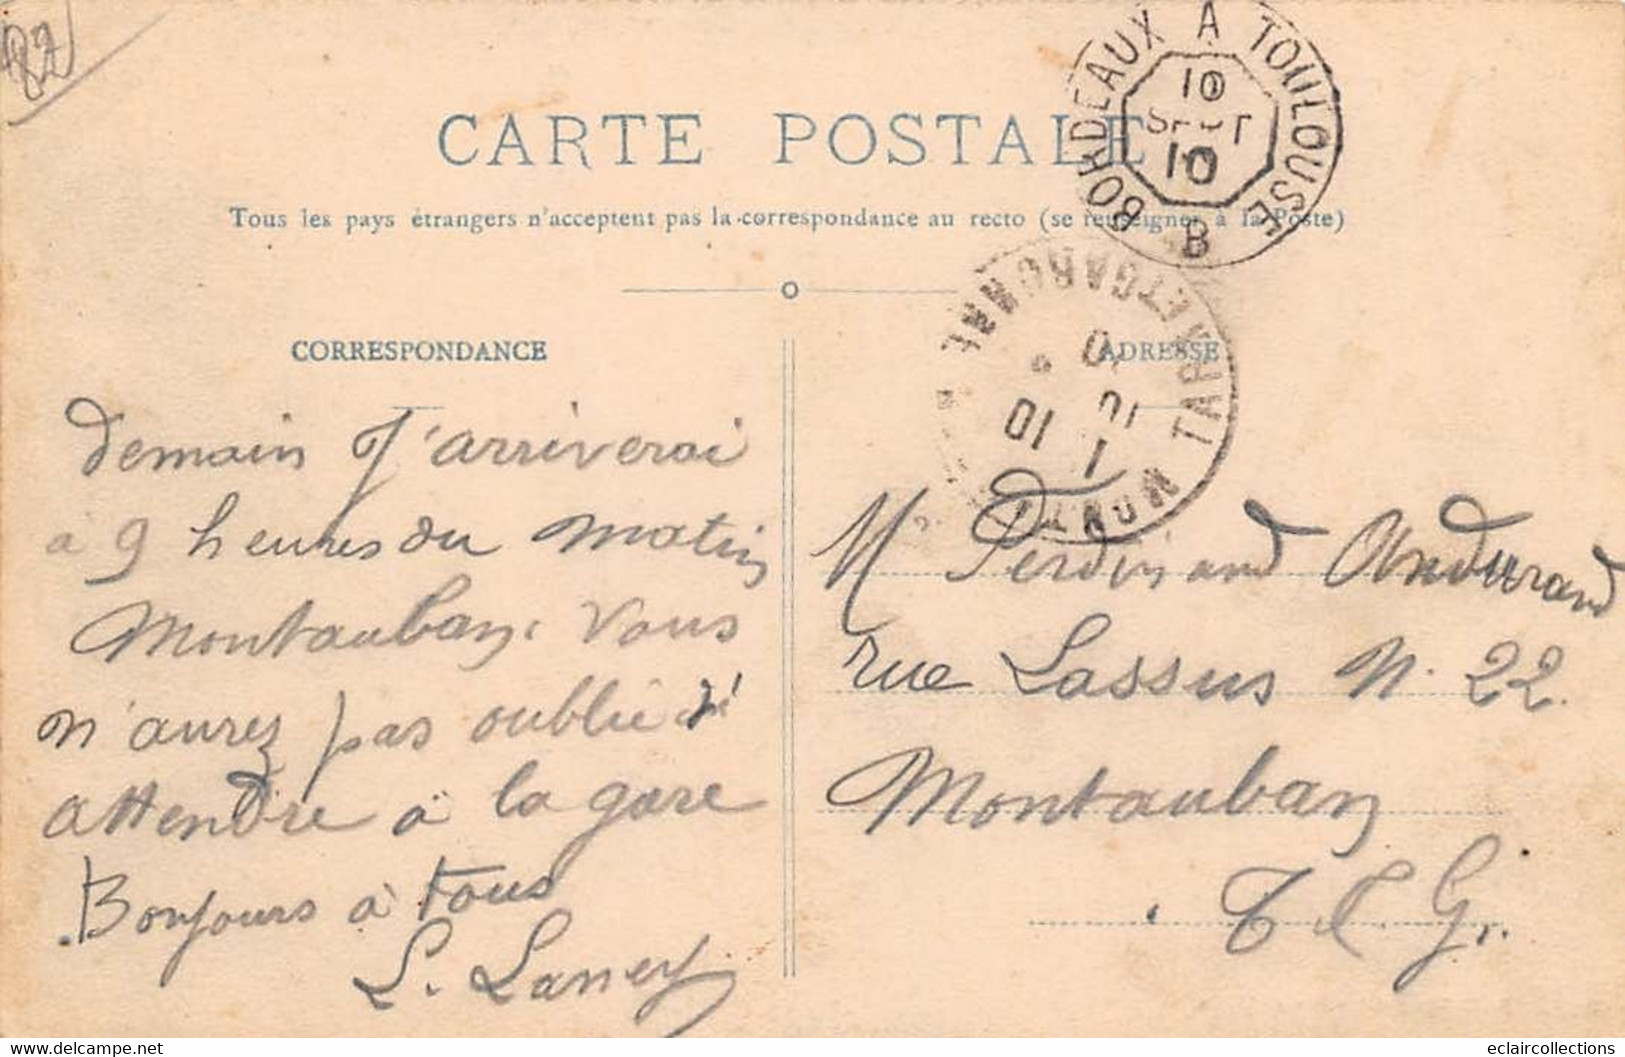 82
CARTE POSTALE
Tous les pays étrangers n'acceptent pas la correspondance au recto (se renseigner à la Poste)
BORDEAUX A TOULOUSE
10
SEPT
10
B
TARN ETGARONNE
10
10
CORRESPONDANCE
ADRESSE
demain J'arriverai
à 9 heures du matin
Montauban. Vous
n'aurez pas oublié d'
attendre à la gare
Bonjours à tous
L. Laney
M Ferdinand Andurand
rue Lassus N. 22
Montauban
T E G.
© delcampe.net
eclaircollections